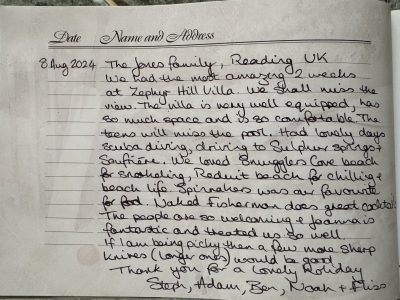 Date Name and Address
8 Aug 2024 The Jones Family, Reading UK
We had the most amazing 2 weeks
at Zephyr Hill Villa. We shall miss the
view. The villa is very well equipped, has
so much space and is so comfortable. The
teens will miss the pool. Had lovely days
scuba diving, driving to Sulphur springs +
Soufriere. We loved Smugglers Cove beach
for snorkeling, Reduit beach for chilling +
beach life. Spinnakers was our favourite
for food. Naked Fisherman does great cocktails
The people are so welcoming + Joanna is
fantastic and treated us so well.
If I am being picky then a few more sharp
knives (longer ones) would be good.
Thank you for a lovely Holiday
Steph, Adam, Ben, Noah + Fliss